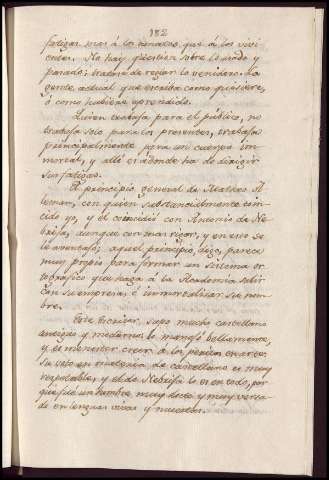 182
fatigar mas á los venideros, que á los vivi
entes. No hay qüestion sobre lo usado y
pasado: tratase de reglar lo venidero. La
gente actual que escriba como quisiere,
ó como hubiere aprendido.
Quien trabaja para el público, no
trabaja solo para los presentes, trabaja
principalmente para un cuerpo im
mortal, y allí es adonde ha de dirigir
sus fatigas.
El principio general de Matheo A
leman, con quien substancialmente coin
cido yo, y el coincidió con Antonio de Ne
brija, aunque con mas rigor, y en eso se
le aventajó; aquel principio, digo, parece
muy propio para formar un sistema or
tográfico que haga á la Academia salir
con su empresa, é immortalizar su nom
bre.
Este Escritor, supo mucho castellano
antiguo y moderno, lo manejó bellamente,
y es menester creer á los peritos en su arte.
Su voto en materia de castellano es muy
respetable, y el de Nebrija lo es en todo, por
que fué un hombre muy docto y muy versa
do en lenguas vivas y muertas.